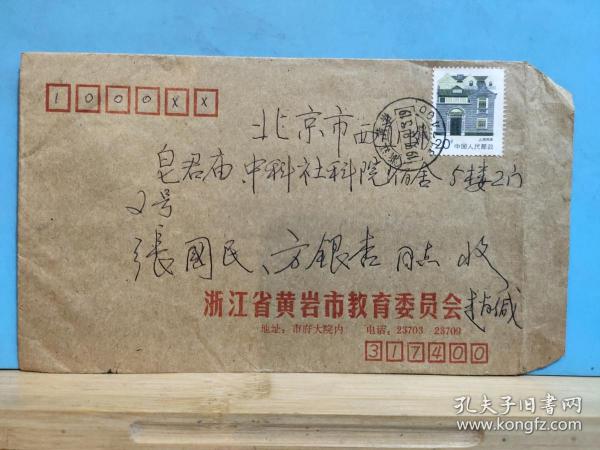 1 0 0 0 X X
北京市西郊
皂君庙 中科社科院宿舍 5楼2门
2号
張國民、方銀杏 同志 收
浙江省黄岩市教育委员会 缄
地址：市府大院内 电话：23703 23709
317400
20分 中国人民邮政
上海民居
孔夫子旧书网
www.kongfz.com